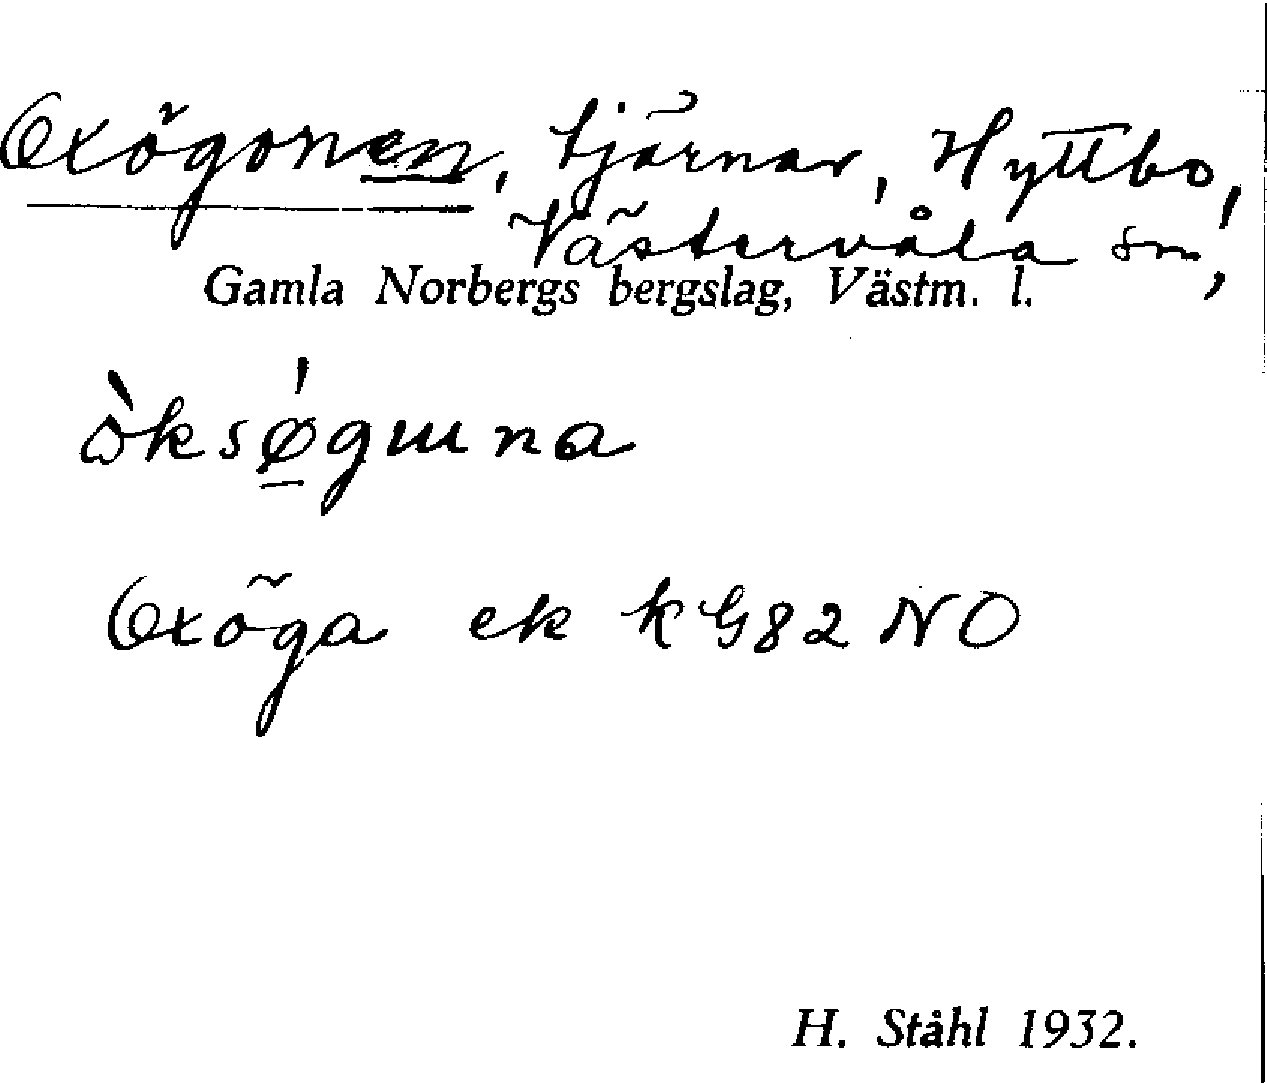 Oxögonen, tjärnar, Hyttbo,
Västervåla sn,
Gamla Norbergs bergslag, Västm. l.
ὼksǿ̠gɯna
Oxöga ek KG82 NO
H. Ståhl 1932.